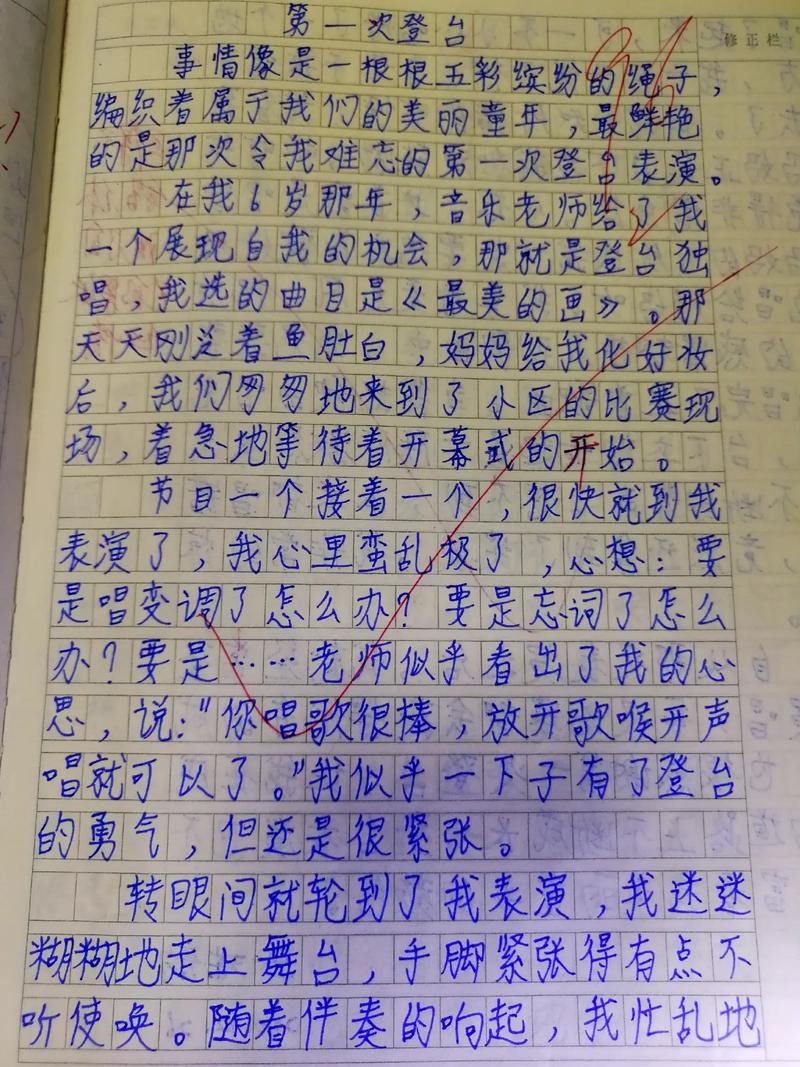 第一次登台
修正栏
事情像是一根根五彩缤纷的绳子，
编织着属于我们的美丽童年，最鲜艳
的是那次令我难忘的第一次登台表演。
在我6岁那年，音乐老师给了我
一个展现自我的机会，那就是登台独
唱，我选的曲目是《最美的画》。那
天天刚泛着鱼肚白，妈妈给我化好妆
后，我们匆匆地来到了小区的比赛现
场，着急地等待着开幕式的开始。
节目一个接着一个，很快就到我
表演了，我心里蛮乱极了，心想：要
是唱变调了怎么办？要是忘词了怎么
办？要是……老师似乎看出了我的心
思，说："你唱歌很棒，放开歌喉开声
唱就可以了。"我似乎一下子有了登台
的勇气，但还是很紧张。
转眼间就轮到了我表演，我迷迷
糊糊地走上舞台，手脚紧张得有点不
听使唤。随着伴奏的响起，我忙乱地